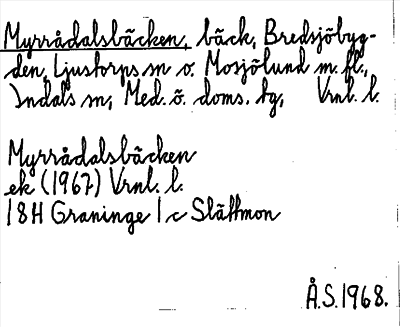 Myrrådalsbäcken, bäck, Bredsjöbyg-
den, Ljustorps sn o. Mosjölund m. fl.,
Indals sn, Med. ö. doms. tg, Vrnl. l.
Myrrådalsbäcken
ek (1967) Vrnl. l.
18H Graninge 1c Slättmon
Å.S. 1968.